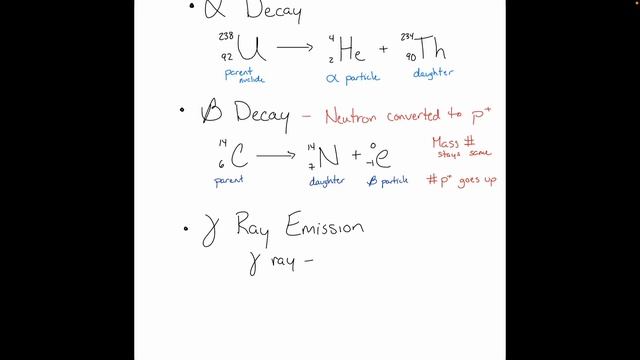 • α Decay
²³⁸₉₂U → ⁴₂He + ²³⁴₉₀Th
parent nuclide α particle daughter
• β Decay – Neutron converted to p⁺
¹⁴₆C → ¹⁴₇N + ⁰₋₁e Mass # stays same
parent daughter β particle # p⁺ goes up
• γ Ray Emission
γ ray –